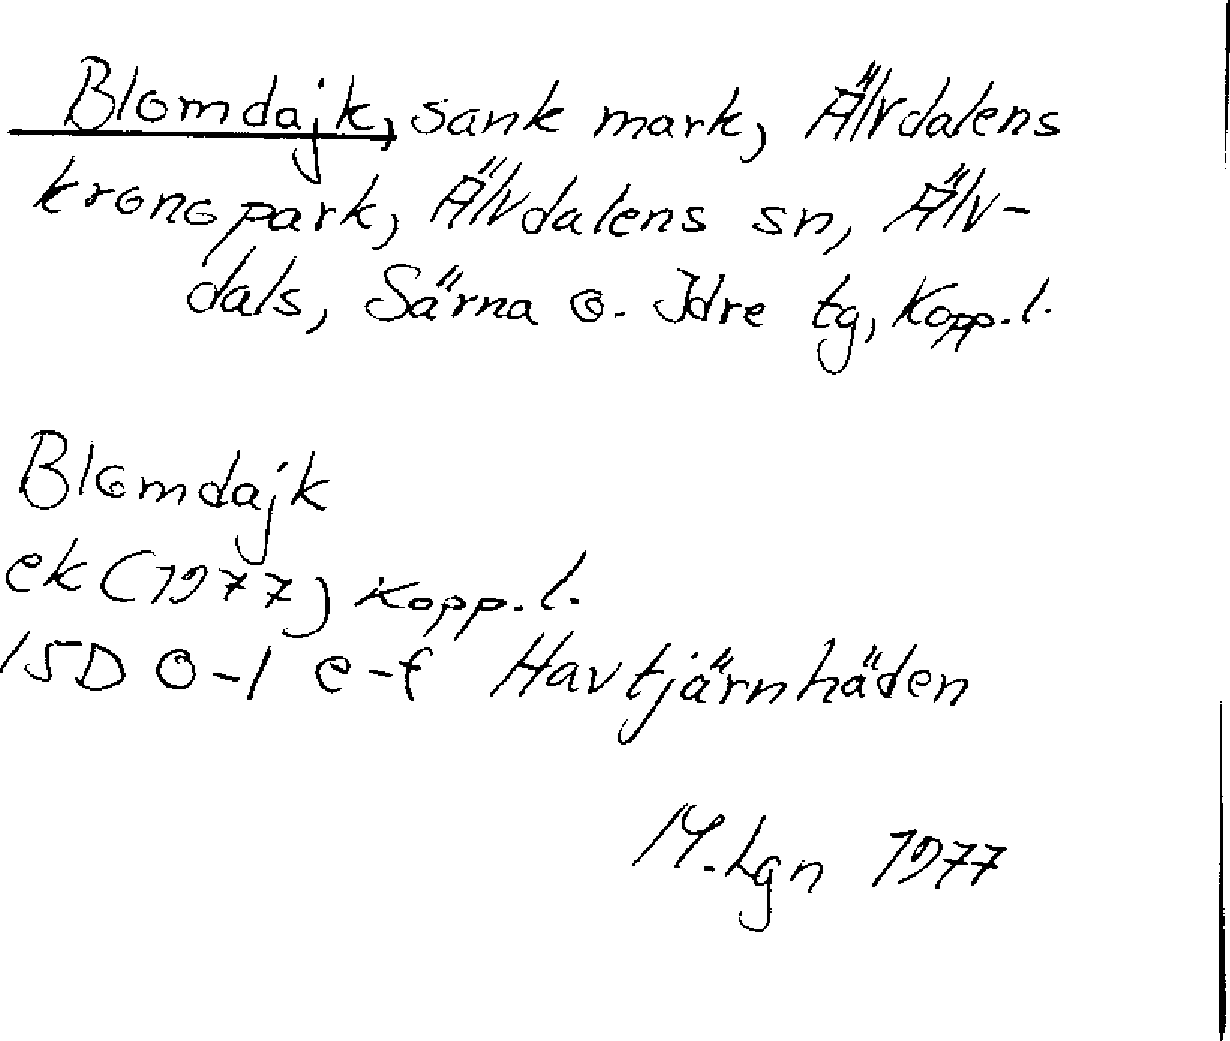 Blomdajk, sank mark, Älvdalens
kronopark, Älvdalens sn, Älv-
dals, Särna o. Idre tg, Kopp. l.
Blomdajk
ek (1977) Kopp. l.
15D 0-1 e-f Havtjärnhäden
M. Lgn 1977